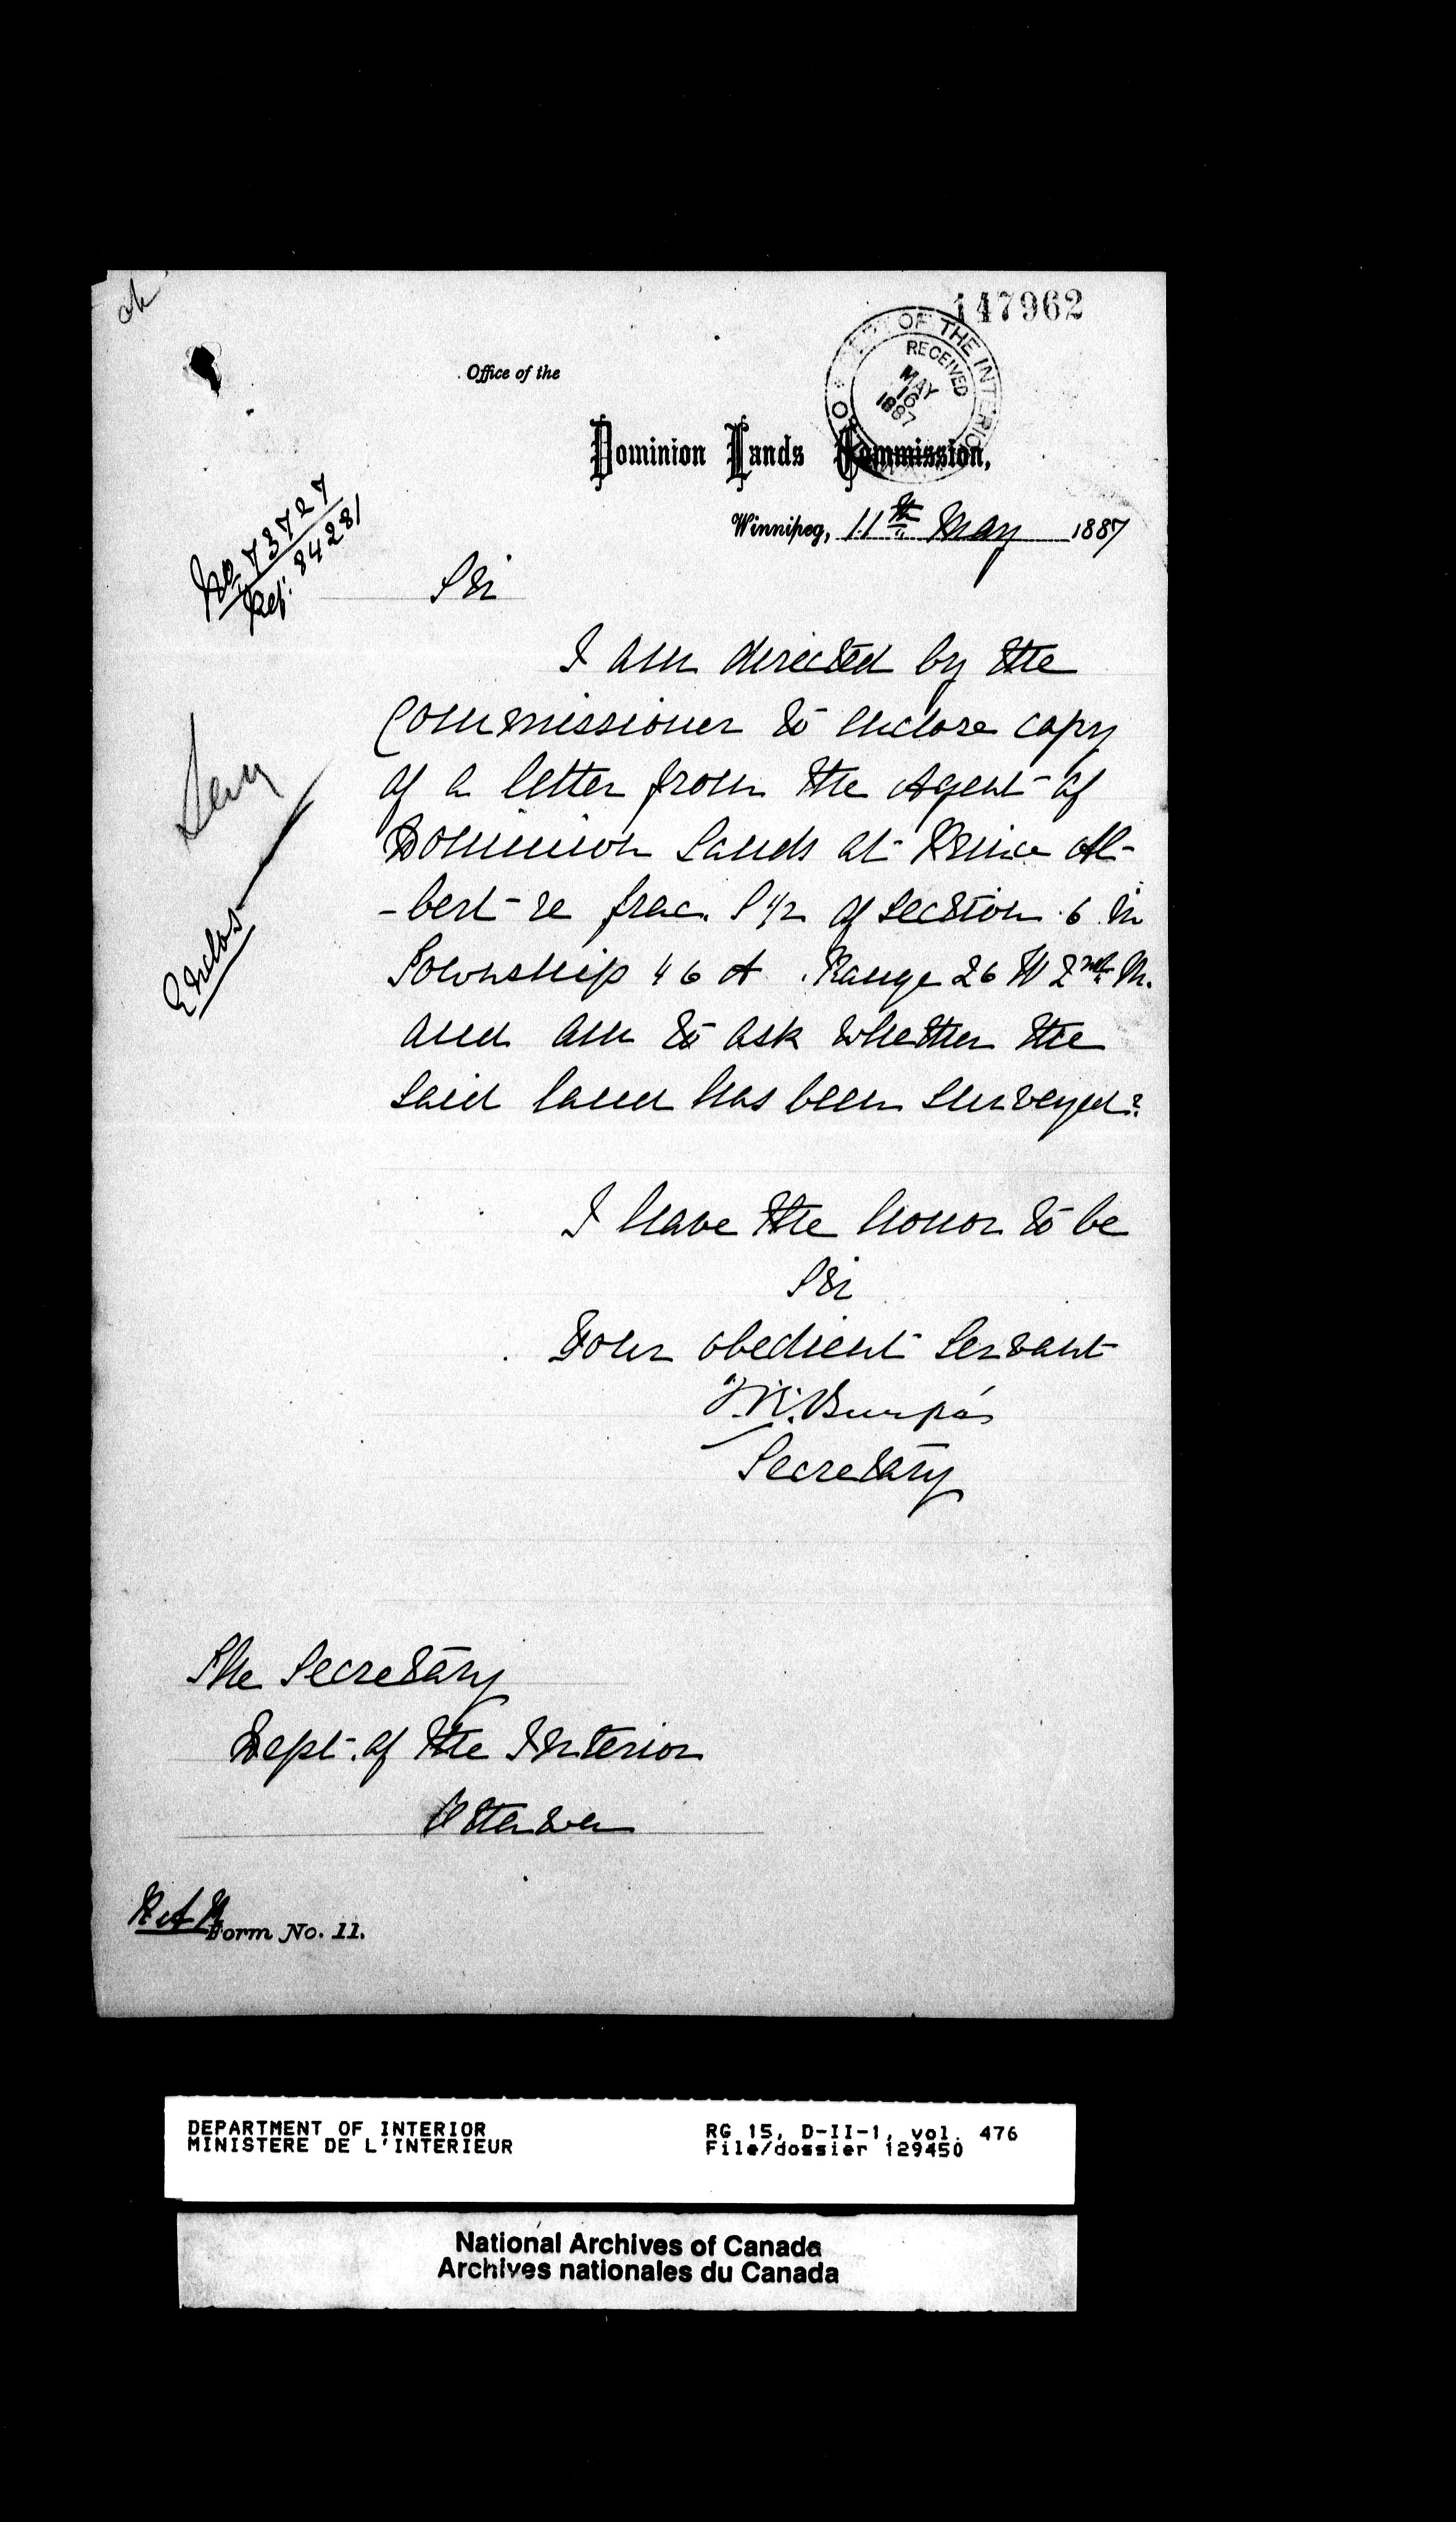 147962
DEPT OF THE INTERIOR
RECEIVED
MAY
16
1887
Office of the
Dominion Lands Commission,
Winnipeg, 11th May 1887
No. 73727
Ref: 84281
Sir
I am directed by the
Commissioner to enclose copy
of a letter from the Agent of
Dominion Lands at Prince Al-
-bert re frac. S 1/2 of section 6 in
Township 46 A Range 26 W 2nd M.
and am to ask whether the
said land has been surveyed?
Enclos
I have the honor to be
Sir
Your obedient servant
Secretary
The Secretary
Dept. of the Interior
Ottawa
Form No. 11.
DEPARTMENT OF INTERIOR
MINISTERE DE L'INTERIEUR
RG 15, D-II-1, vol. 476
File/dossier 129450
National Archives of Canada
Archives nationales du Canada